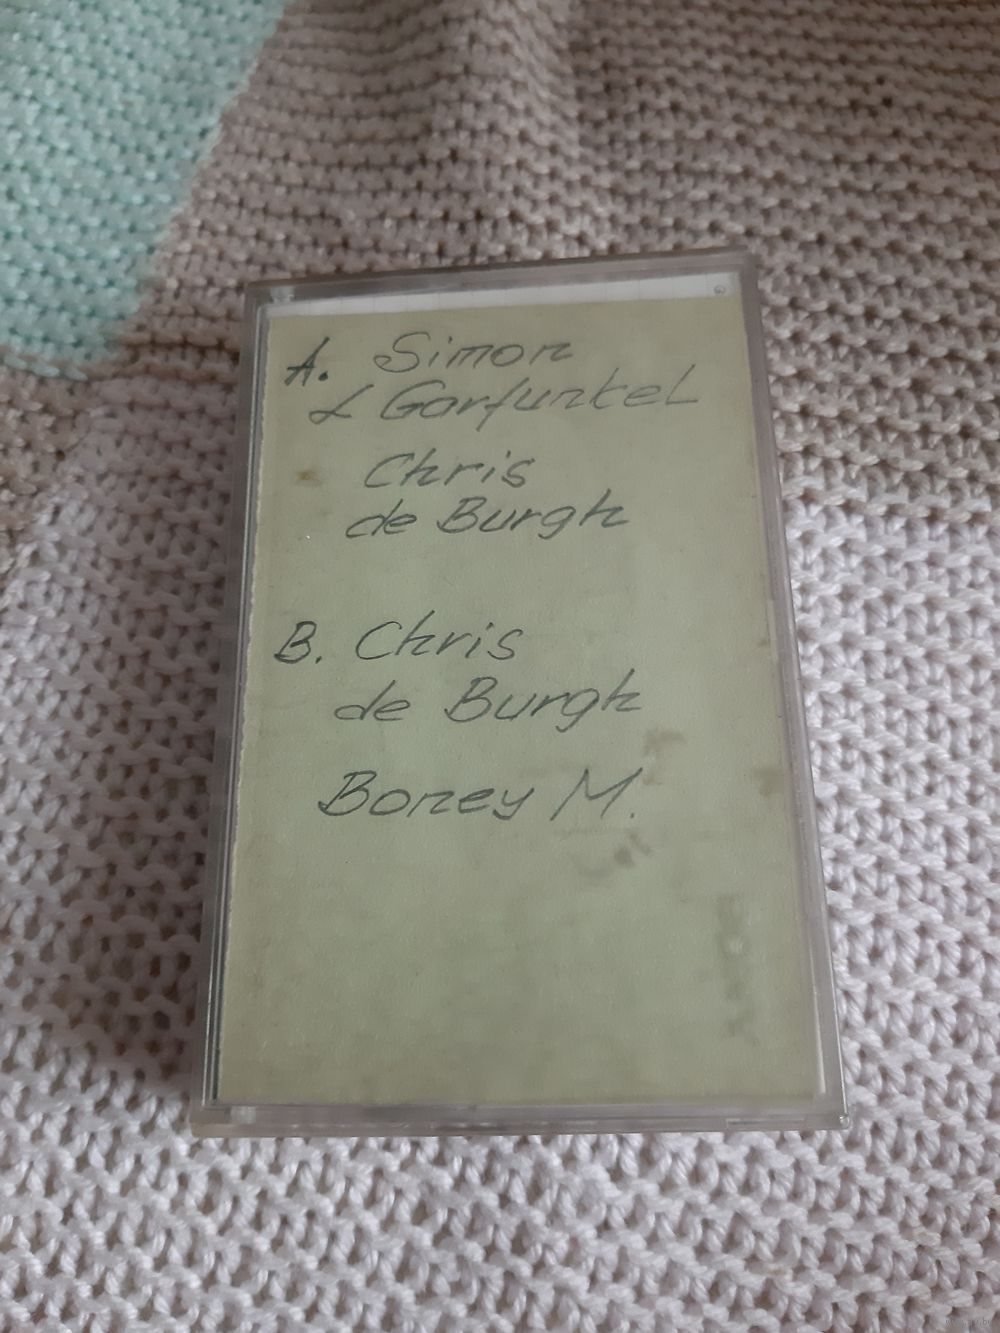 A. Simon
& Garfunkel
Chris
de Burgh
B. Chris
de Burgh
Boney M.